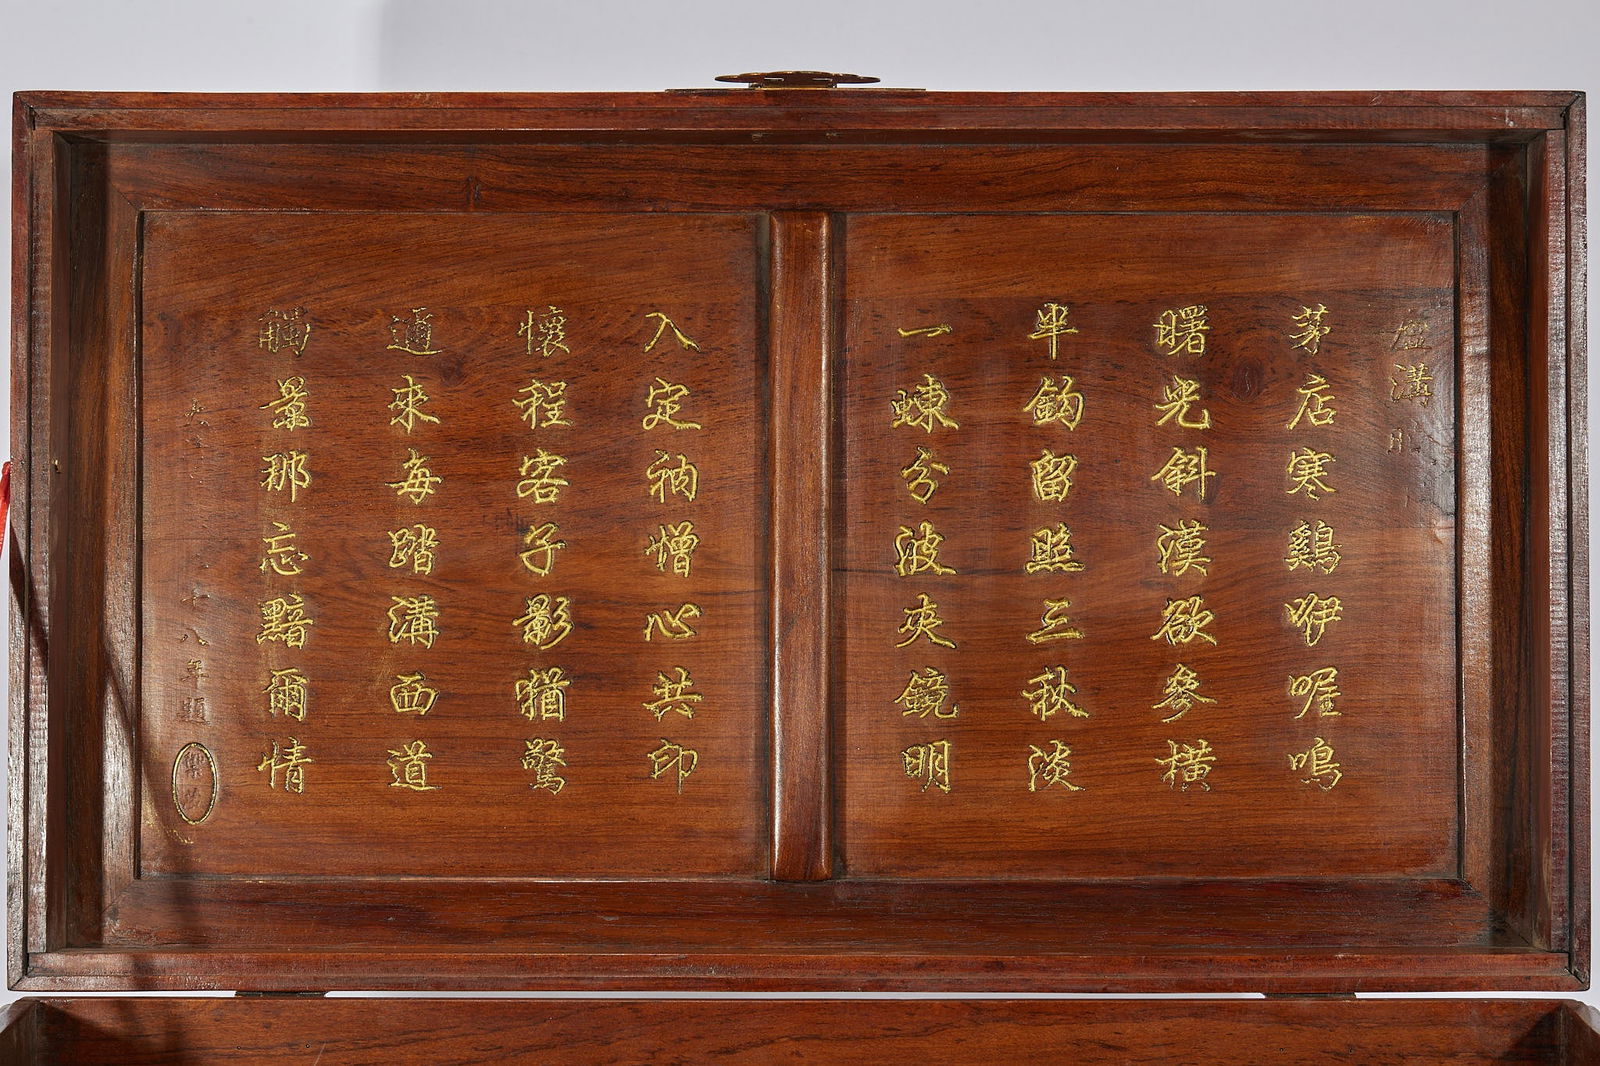 盧溝
茅店寒鷄咿喔鳴
曙光斜漢欲參橫
半鈎留照三秋淡
一蝀分波夾鏡明
入定衲僧心共印
懷程客子影猶驚
邇來每踏溝西道
觸景那忘黯爾情
八年題